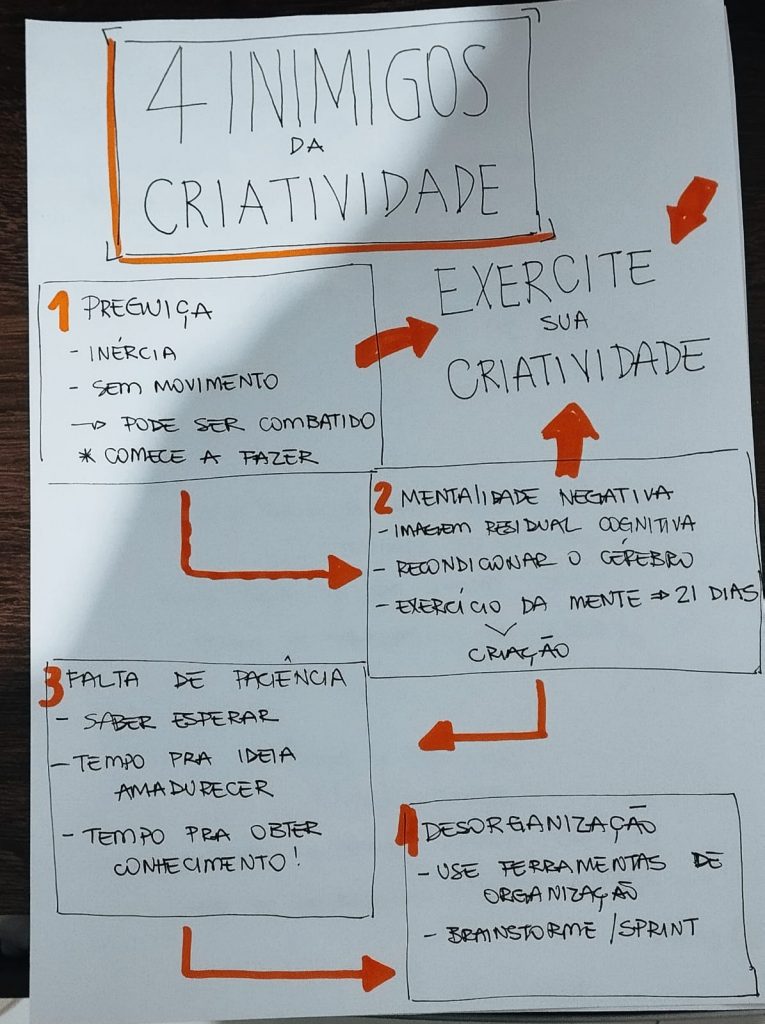 4 INIMIGOS
DA
CRIATIVIDADE
EXERCITE
SUA
CRIATIVIDADE
1 PREGUIÇA
- INÉRCIA
- SEM MOVIMENTO
→ PODE SER COMBATIDO
* COMECE A FAZER
2 MENTALIDADE NEGATIVA
- IMAGEM RESIDUAL COGNITIVA
- RECONDICIONAR O CÉREBRO
- EXERCÍCIO DA MENTE ⇒ 21 DIAS
CRIAÇÃO
3 FALTA DE PACIÊNCIA
- SABER ESPERAR
- TEMPO PRA IDEIA
AMADURECER
- TEMPO PRA OBTER
CONHECIMENTO!
4 DESORGANIZAÇÃO
- USE FERRAMENTAS DE
ORGANIZAÇÃO
- BRAINSTORME / SPRINT